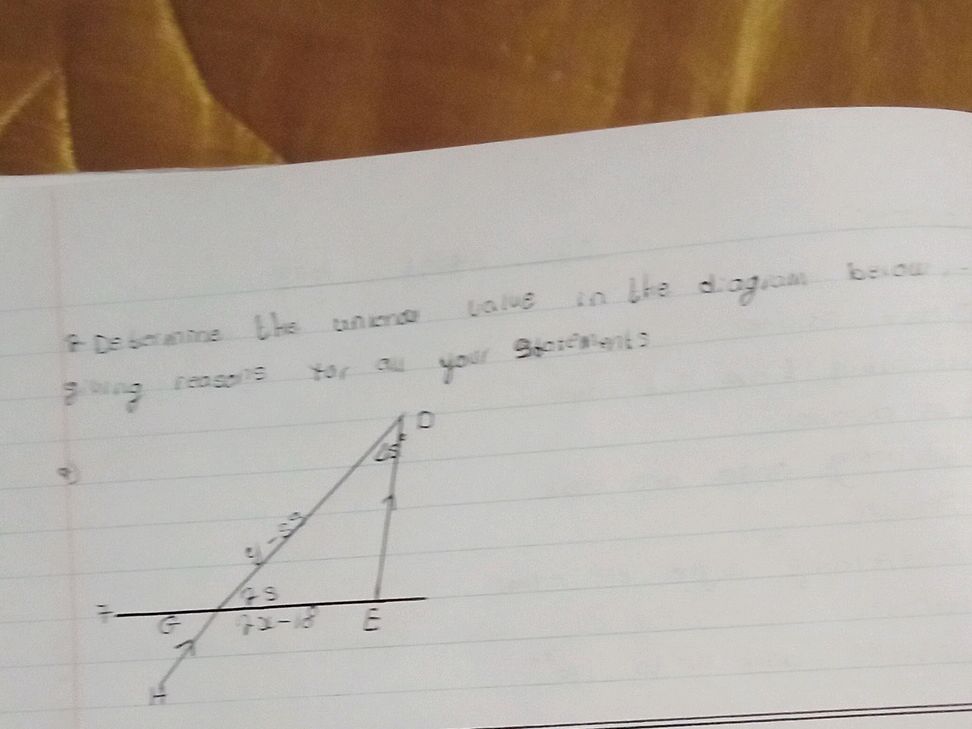 Determine the value in the diagram below
giving reasons for all your statements
a)
D
y-5°
75
F
G
E
H